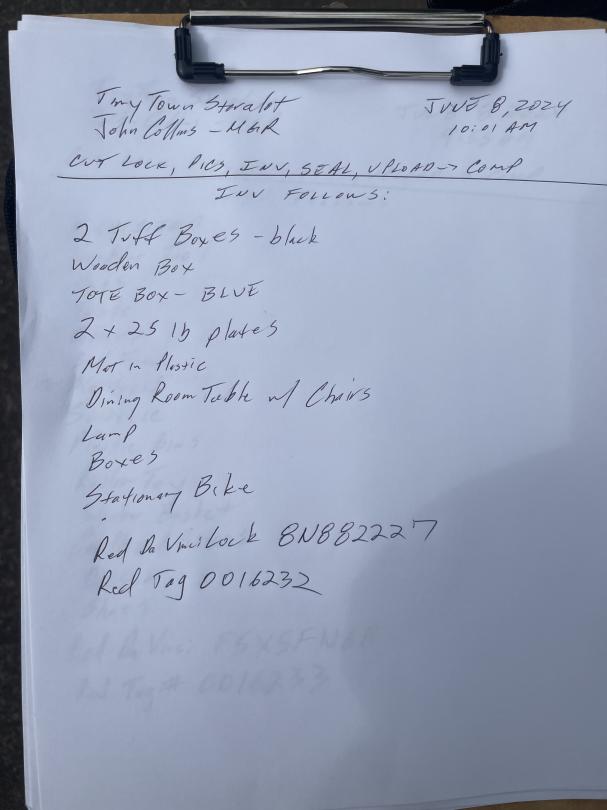 Tiny Town Storalot
JUNE 8, 2024
John Collins - MGR
10:01 AM
CUT LOCK, PICS, INV, SEAL, UPLOAD -> COMP
INV FOLLOWS:
2 Tuff Boxes - black
Wooden Box
TOTE BOX - BLUE
2 x 25 lb plates
Mat in Plastic
Dining Room Table w/ Chairs
Lamp
Boxes
Stationary Bike
Red Da Vinci Lock 8N882227
Red Tag 0016232
Red Da Vinci
Red Tag # 0016233